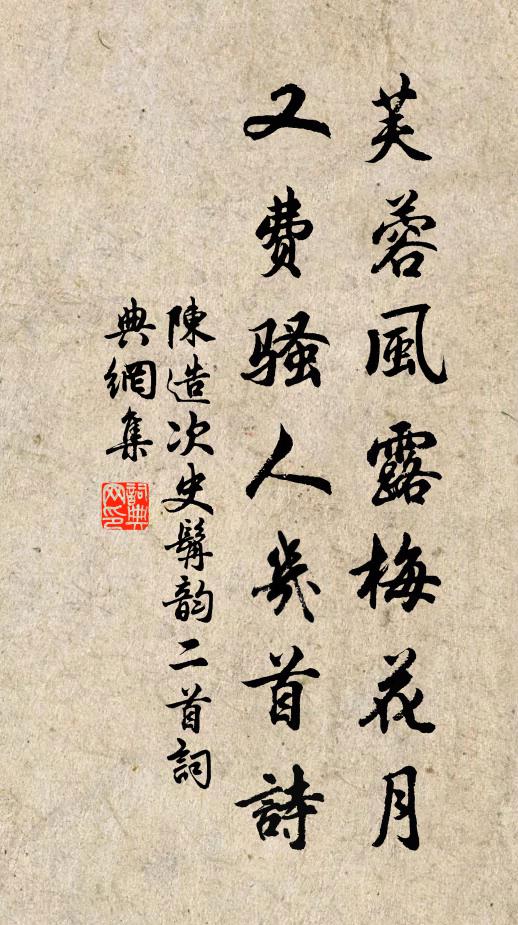 芙蓉風露梅花月
又費騷人幾首詩
陳造次史髯韵二首詞
典網集
詞典
网印